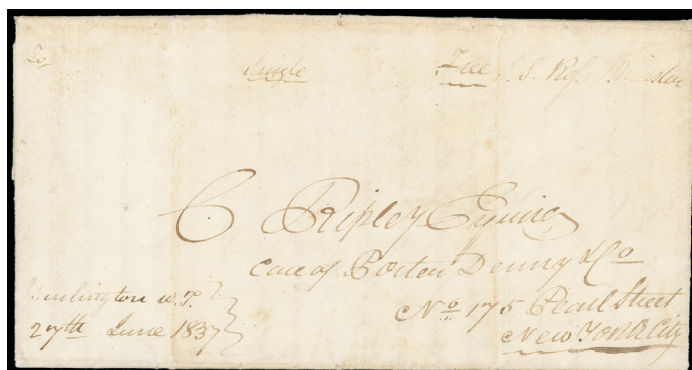 Single Free S. S. Ross P. Master
C Ripley Esquire
care of Porter Denny & Co
No 175 Pearl Street
New York City
Burlington W. T.
27th June 1837